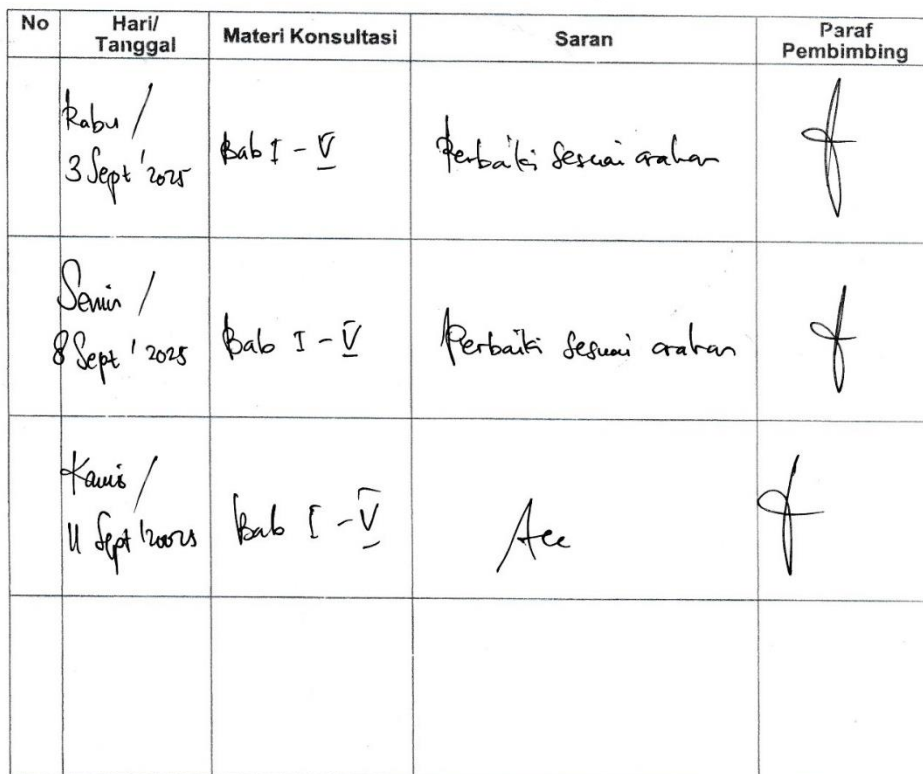 No
Hari/
Tanggal
Materi Konsultasi
Saran
Paraf
Pembimbing
Rabu /
3 Sept ' 2025
Bab I - V
Perbaiki sesuai arahan
Senin /
8 Sept ' 2025
Bab I - V
Perbaiki sesuai arahan
Kamis /
11 Sept ' 2025
Bab I - V
Acc